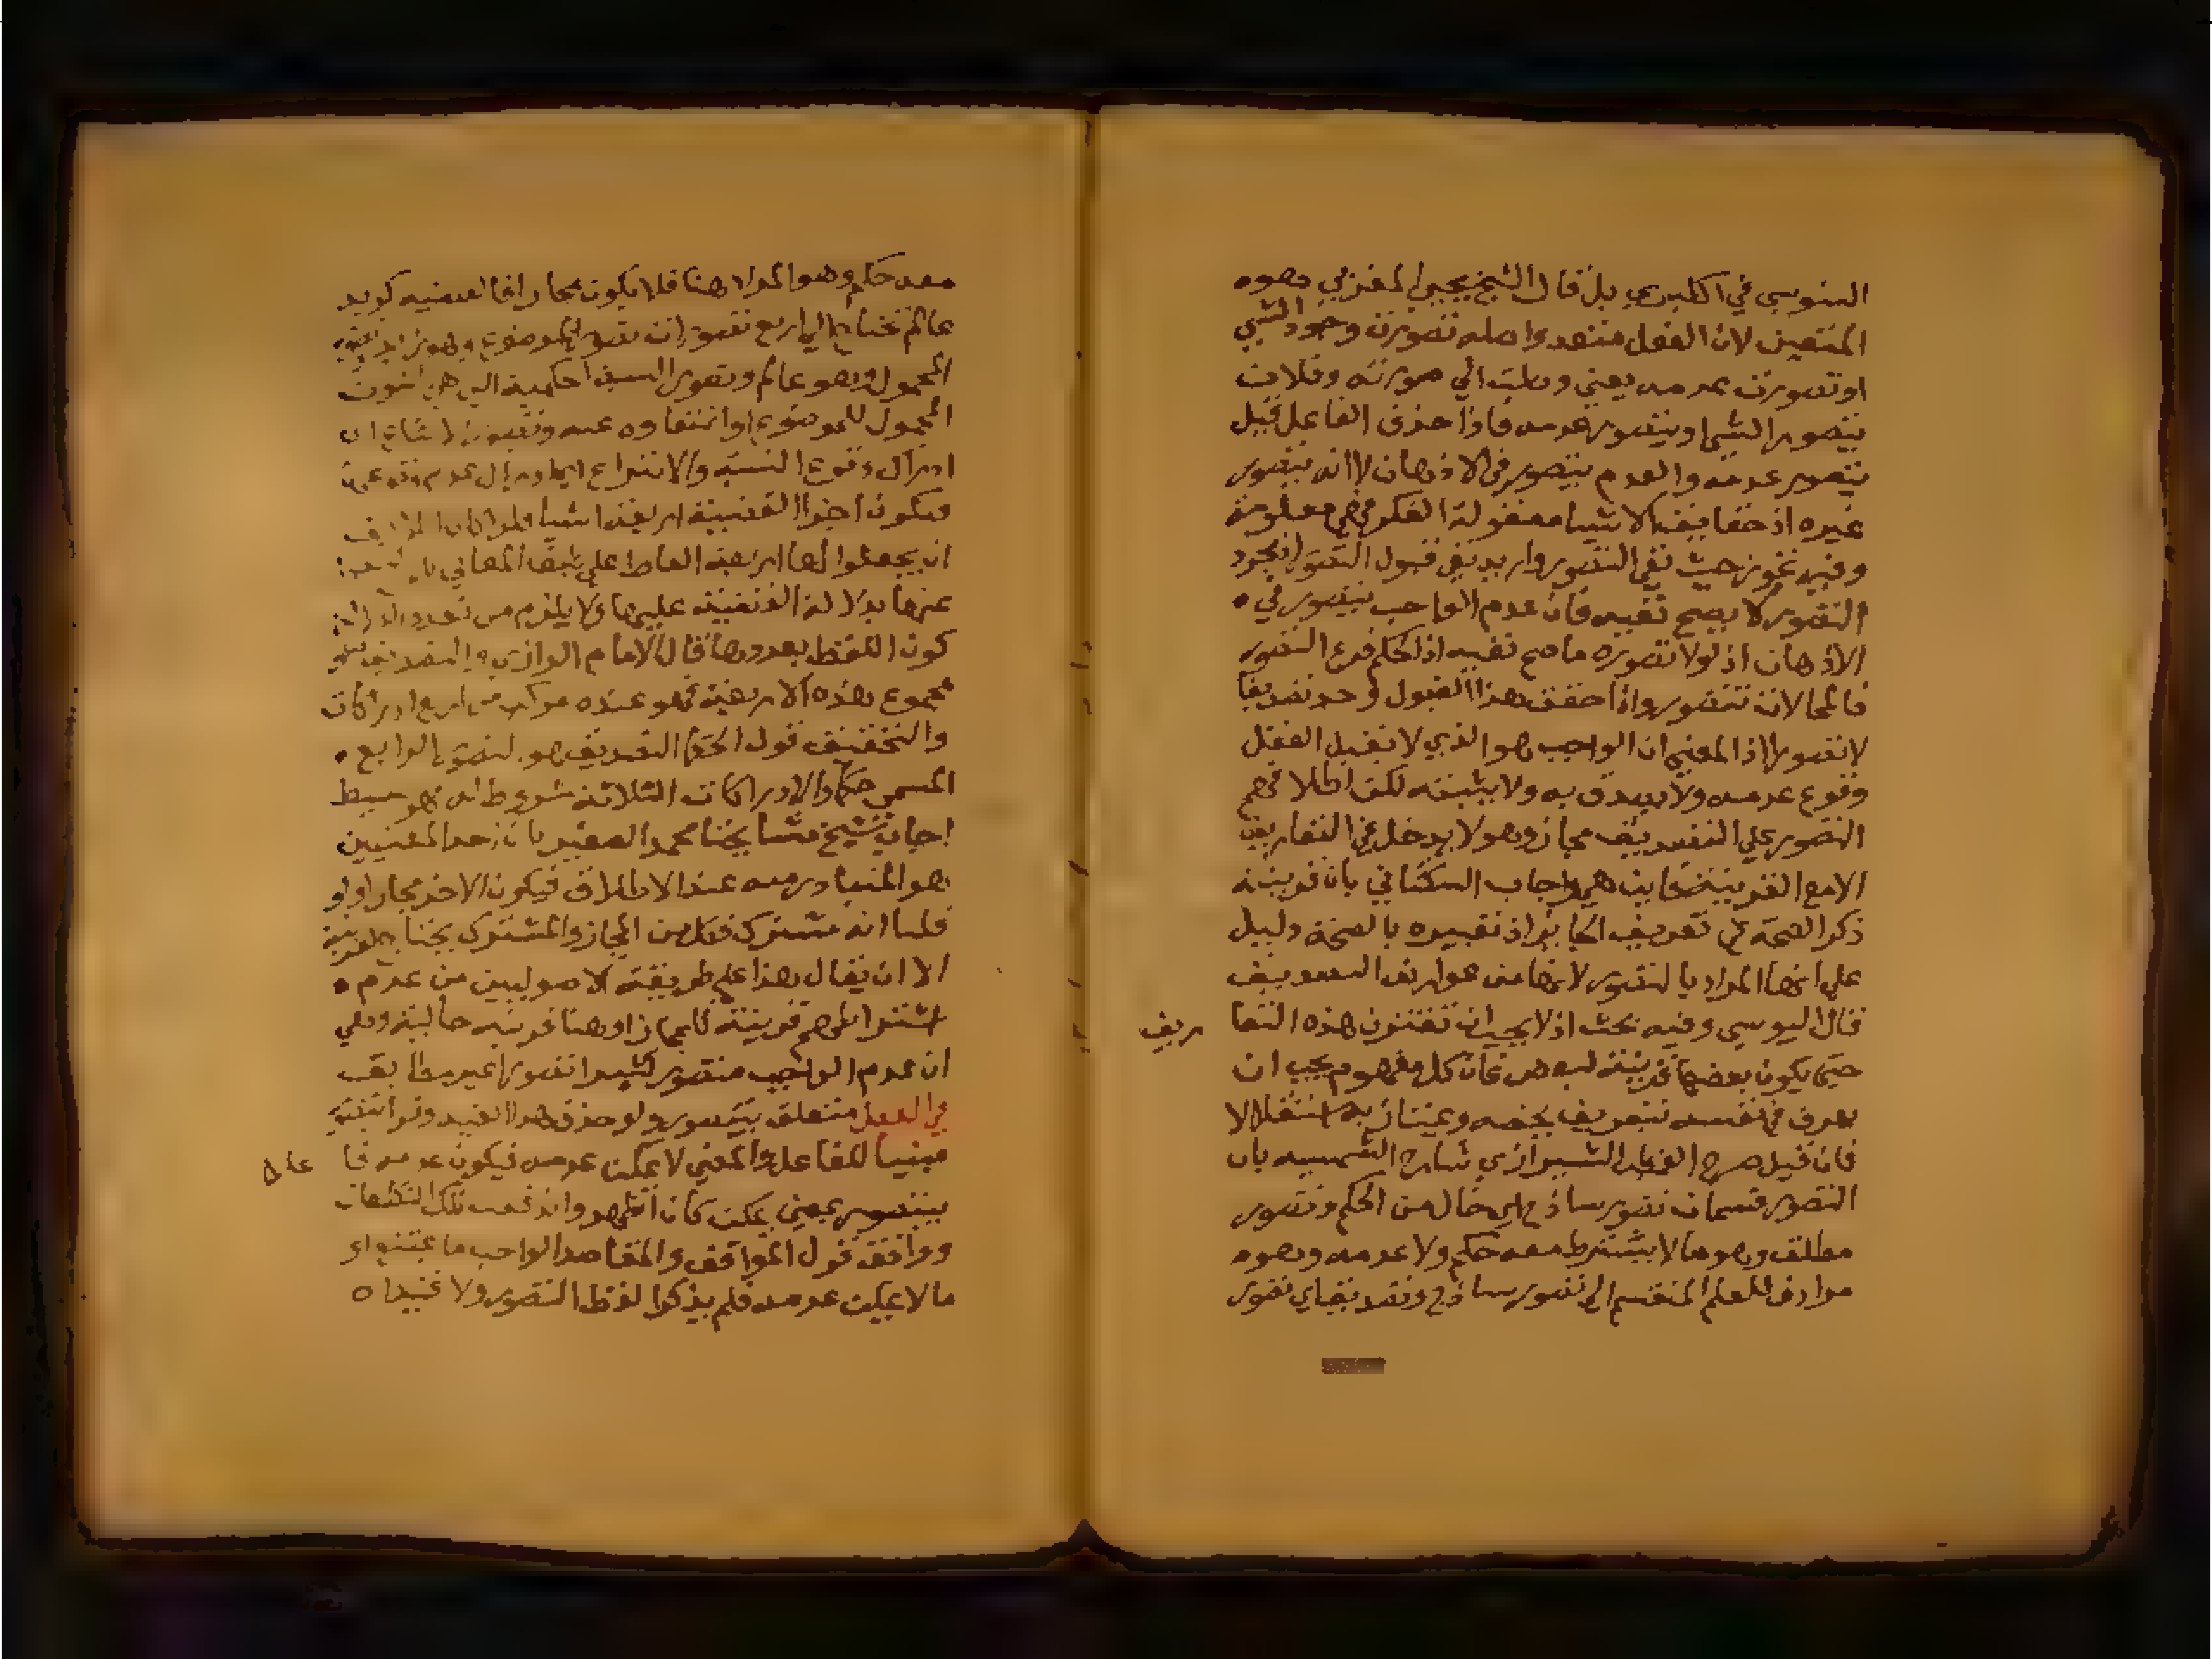 السنوسي في الكبرى بل قال الشيخ يحيى المغربي وهو
المتعين لان الفعل متعد واصله تصورت وجود الشي
او تصورت عدمه يعني وصلت الي صورته وفلان
يتصور الشي او يتصور عدمه فاذا حذف الفاعل قيل
يتصور عدمه والعدم يتصور في الاذهان لا انه يتصور
غيره اذ حقايق الاشيا معقولة الفكر فهي معلومة
وفيه تجوز حيث نفي التصور واريد نفي قبول التصور اذ مجرد
التصور لا يصح نفيه فان عدم الواجب يتصور في
الاذهان اذ لولا تصوره ما صح نفيه اذ الحكم فرع التصور
فالمحال انه تتصور واذا حقق هذا القبول وجد تصديقا
لا تصورا اذ المعني ان الواجب هو الذي لا يقبل العقل
وقوع عدمه ولا يصدق به ولا يثبته لكن اطلاقهم
التصور علي التصديق مجاز وهو لا يدخل في التعاريف
الا مع القرينة واجاب السكتاني بان قرينة
ذكر الصحة في تعريف الجايز اذ تعبيره بالصحة دليل
علي انها المراد بالتصور لانها من عوارض التصديق
قال اليوسي وفيه بحث اذ لا يجب ان تقترن هذه التعا
ريف
حتي يكون بعضها قرينة لبعض فان كل مفهوم يجب ان
يعرف في نفسه بتعريف يخصه ويمتاز به استقلالا
فان قيل صرح القطب الشيرازي شارح الشمسيه بان
التصور قسمان تصور ساذج اي خال من الحكم وتصور
مطلق وهو ما لا يشترط معه حكم ولا عدمه وهو
مرادف للعلم المنقسم الي تصور ساذج وتصديق اي تصور
معه حكم وهو المراد هنا فلا يكون مجازا فالقضيه كزيد
عالم تحتاج الي اربع تصورات تصور الموضوع وهو زيد
المحمول وهو عالم وتصور النسبة الحكمية التي هي ثبوت
المحمول للموضوع او انتفاوه عنه
ادراك وقوع النسبة والانتزاع اي ادراك عدم وقوعها
فتكون اجزا القضية اربعة اشيا
ان يجعلوا لها اربعة الفاظ علي طبق المعاني
عنها بدلالة القضية عليها ولا يلزم من تعدد
كون اللفظ بعددها قال الامام الرازي والتصديق هو
مجموع هذه الاربعة فهو عنده مركب من اربع ادراكات
والتحقيق قول الحكما التصديق هو التصور الرابع
المسمي حكما والادراكات الثلاثة شروط له فهو بسيط
اجاب شيخ مشايخنا محمد الصغير بان احد المعنيين
هو المتبادر منه عند الاطلاق فيكون الاخر مجازا ولو
قلنا انه مشترك فكل من المجاز والمشترك يحتاج لقرينة
الا ان يقال هذا علي طريقة الاصوليين من عدم
اشتراطهم قرينة للمجاز او هنا قرينه حالية وهي
ان عدم الواجب متصور كثيرا تصورا غير مطابق
في العقل متعلق بيتصور ولو حذف هذا القيد وقرا بنية
مبنيا للفاعل والمعني لا يمكن عدمه فيكون عدمه فا
علا
بيتصور بمعني يمكن كان اظهر واندفعت تلك التكلفات
ووافق قول المواقف والمقاصد الواجب ما يمتنع او
ما لا يمكن عدمه فلم يذكرا لفظ التصور ولا قيداه